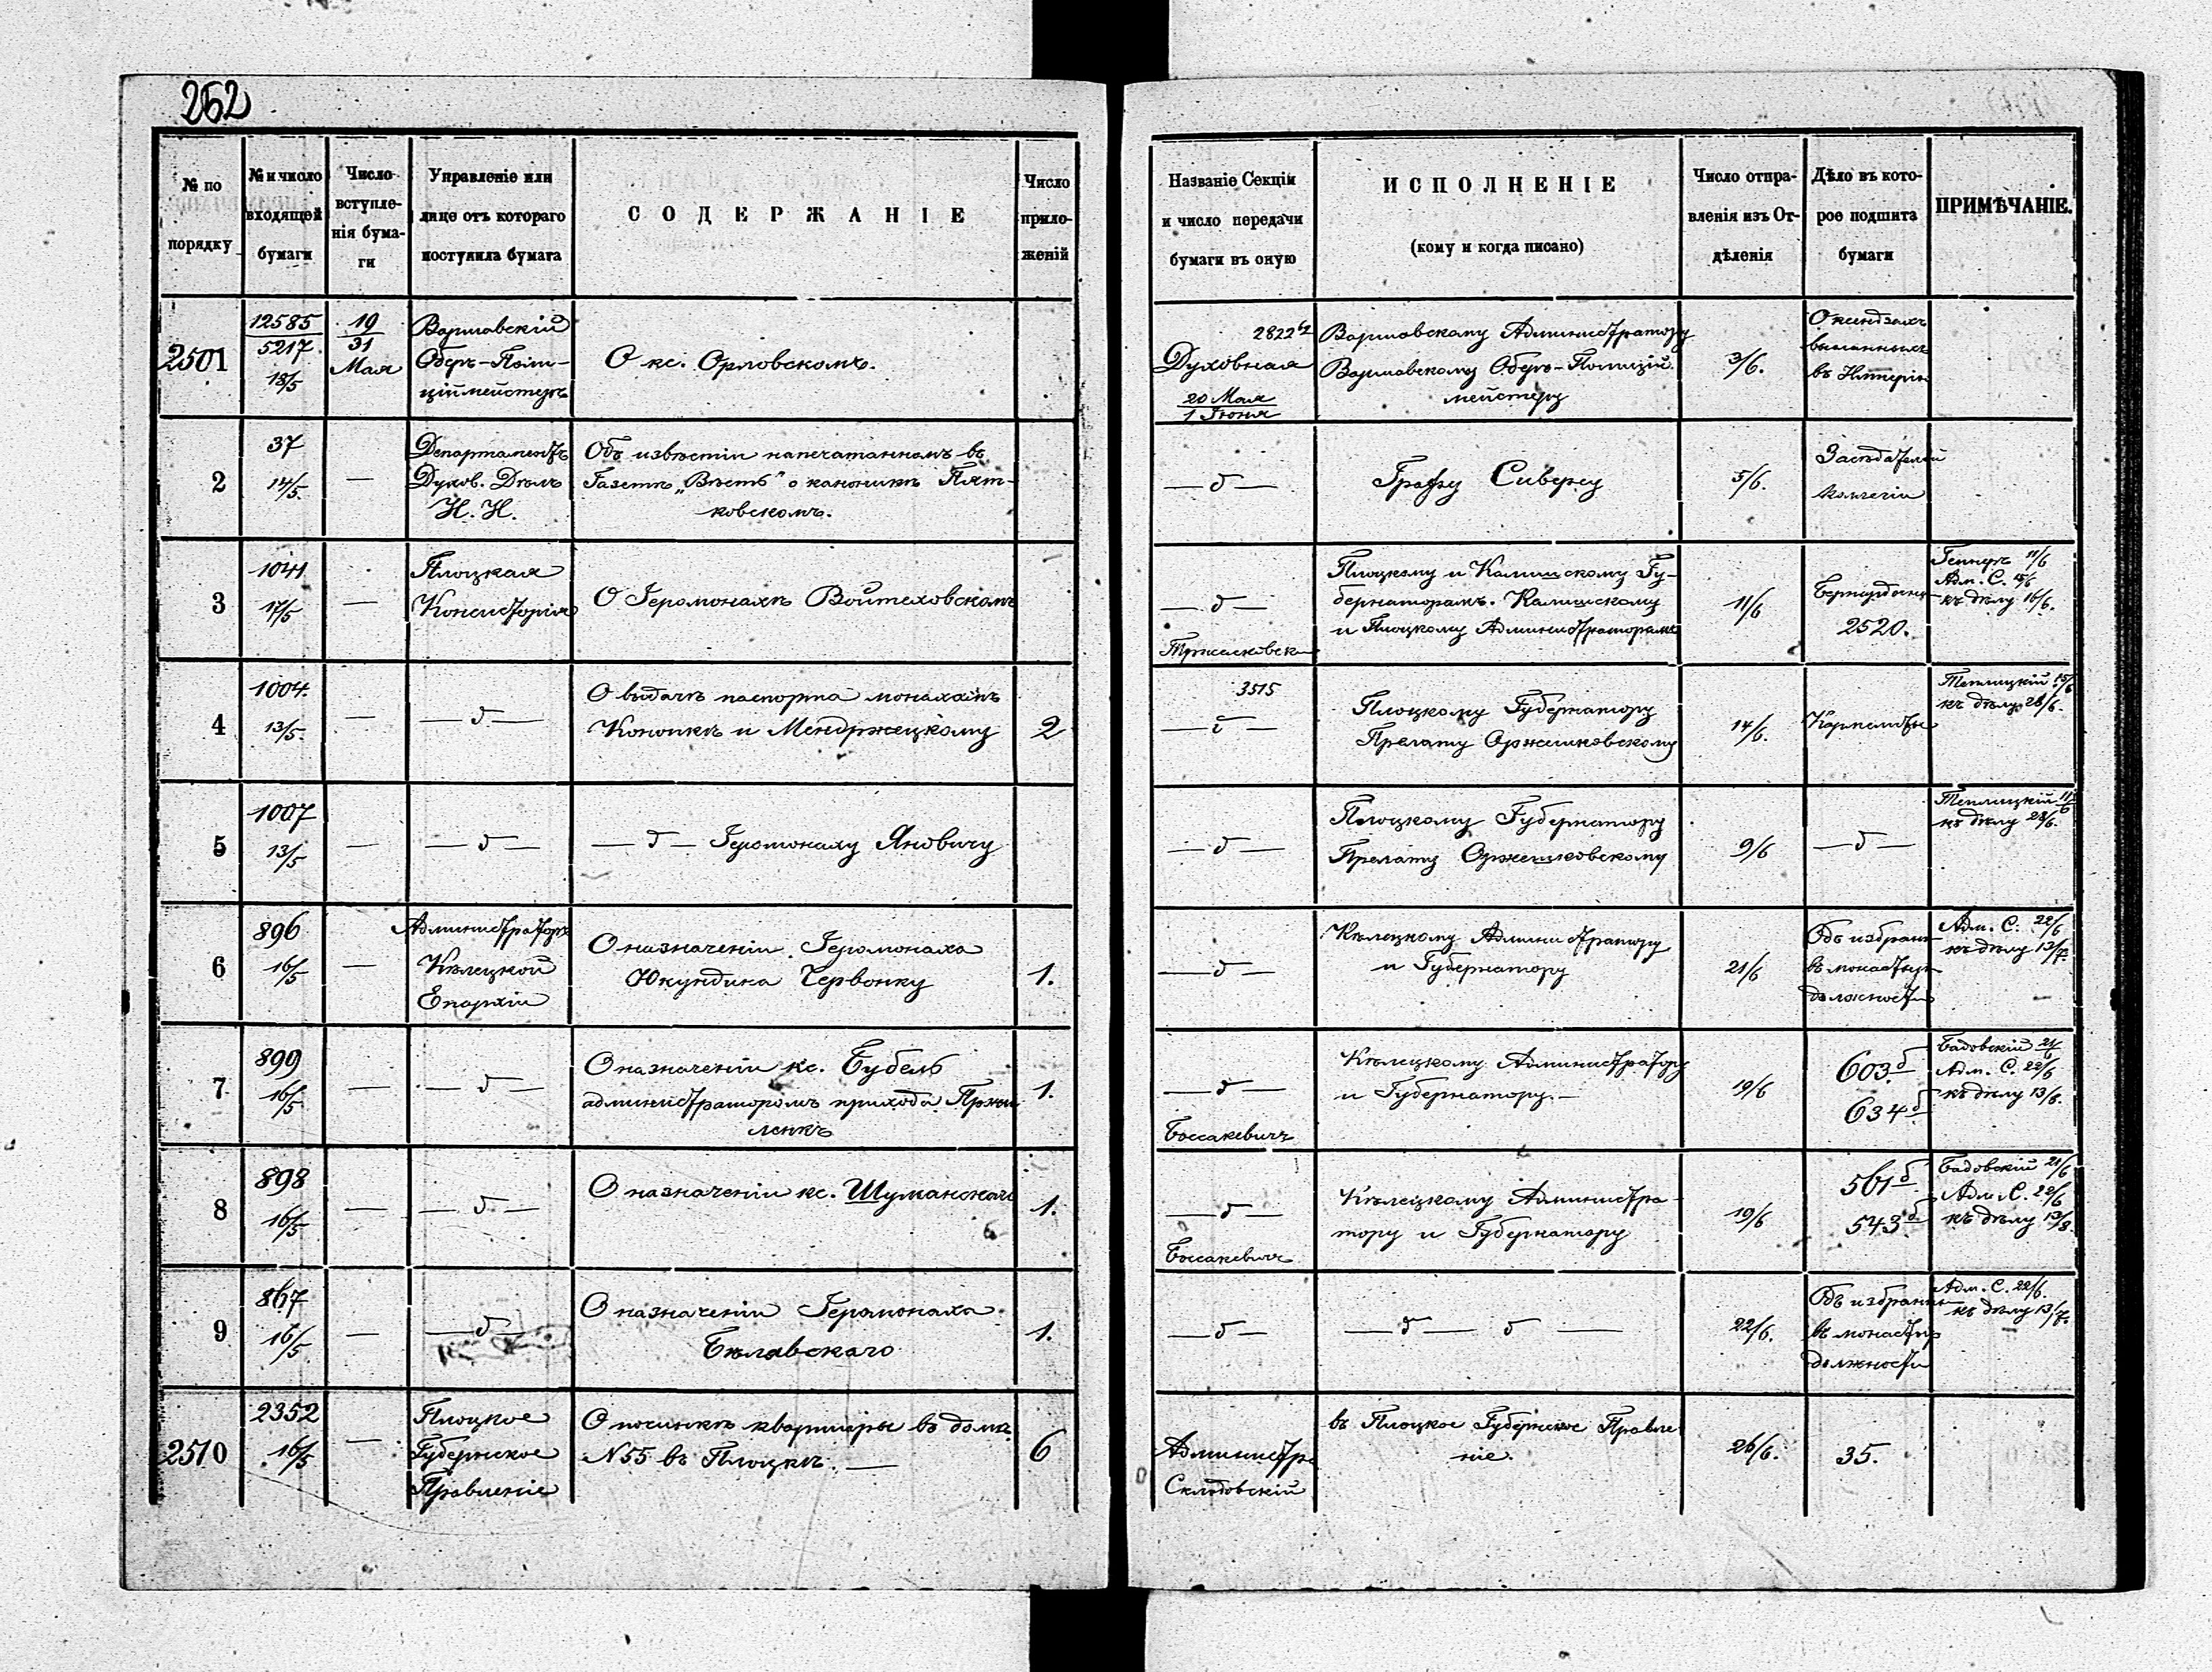 262
№ по порядку
№ и число входящей бумаги
Число вступле-нія бума-ги
Управленіе или лице отъ котораго поступила бумага
СОДЕРЖАНІЕ
Число прило-женій
Названіе Секціи и число передачи бумаги въ оную
ИСПОЛНЕНІЕ
(кому и когда писано)
Число отпра-вленія изъ От-дѣленія
Дѣло въ кото-рое подшита бумаги
ПРИМѢЧАНІЕ.
2501
12585
5217
18/5
19
31
Мая
Варшавскій
Оберъ-Поли-
ціймейстеръ
О кс. Орловскомъ.
2822
Духовная
20 Мая
1 Іюня
Варшавскому Администратору
Варшавскому Оберъ-Полицій
мейстеру
3/6.
О ксендзахъ
высланныхъ
въ Имперію
2
37
14/5.
—
Департаментъ
Духов. Дѣлъ
И. И.
Объ извѣстіи напечатанномъ въ
Газетѣ „Вѣсть" о каноникѣ Пят-
ковскомъ.
— д —
Графу Сиверсу
5/6.
Засѣдателей
Коллегіи
3
1041
17/5
—
Плоцкая
Консисторія
О Іеромонахѣ Войтеховскомъ
— д —
Плоцкому и Калишскому Гу-
бернаторамъ. Калишскому
и Плоцкому Администраторамъ
11/6
2520.
11/6
Адм. С. 15/6
къ дѣлу 16/6.
4
1004.
13/5.
—
— д —
О выдачѣ паспорта монахамъ
Конопкѣ и Мендржецкому
2
3515
— д —
Плоцкому Губернатору
Прелату Оржешковскому
14/6.
Кармелиты
Теплицкій 15/6
къ дѣлу 28/6.
5
1007
13/5
—
— д —
— д — Іеромонаху Яновичу
— д —
Плоцкому Губернатору
Прелату Оржешковскому
9/6
— д —
Теплицкій 11/6
къ дѣлу 28/6.
6
896
16/5
—
Администраторъ
Кѣлецкой
Епархіи
О назначеніи Іеромонаха
Юкундина Червонку
1.
— д —
Кѣлецкому Администратору
и Губернатору
21/6
Объ избран
въ монастыр
должности
Адм. С. 22/6
къ дѣлу 13/7.
7
899
16/5
—
— д —
О назначеніи кс. Бубель
администраторомъ прихода Пржи
ленкъ
1.
— д —
Боссакевичъ
Кѣлецкому Администратору
и Губернатору. —
19/6
603 б
634 б
Бадовскій 21/6
Адм. С. 22/6
къ дѣлу 13/8.
8
898
16/5
—
— д —
О назначеніи кс. Шуманскаго
1.
— д —
Боссакевичъ
Кѣлецкому Администра-
тору и Губернатору
19/6
561 б
543 б
Бадовскій 21/6
Адм. С. 22/6
къ дѣлу 13/8.
9
867
16/5
—
— д —
О назначеніи Іеромонаха
Бѣлавскаго
1.
— д —
— д — д —
22/6.
Объ избран
въ монастыр
должности
Адм. С. 22/6.
къ дѣлу 13/7.
2510
2352
16/5
—
Плоцкое
Губернское
Правленіе
О починкѣ квартиры въ домѣ
№ 55 въ Плоцкѣ. —
6
Администра
Склодовскій
въ Плоцкое Губернское Правле
ніе.
26/6.
35.